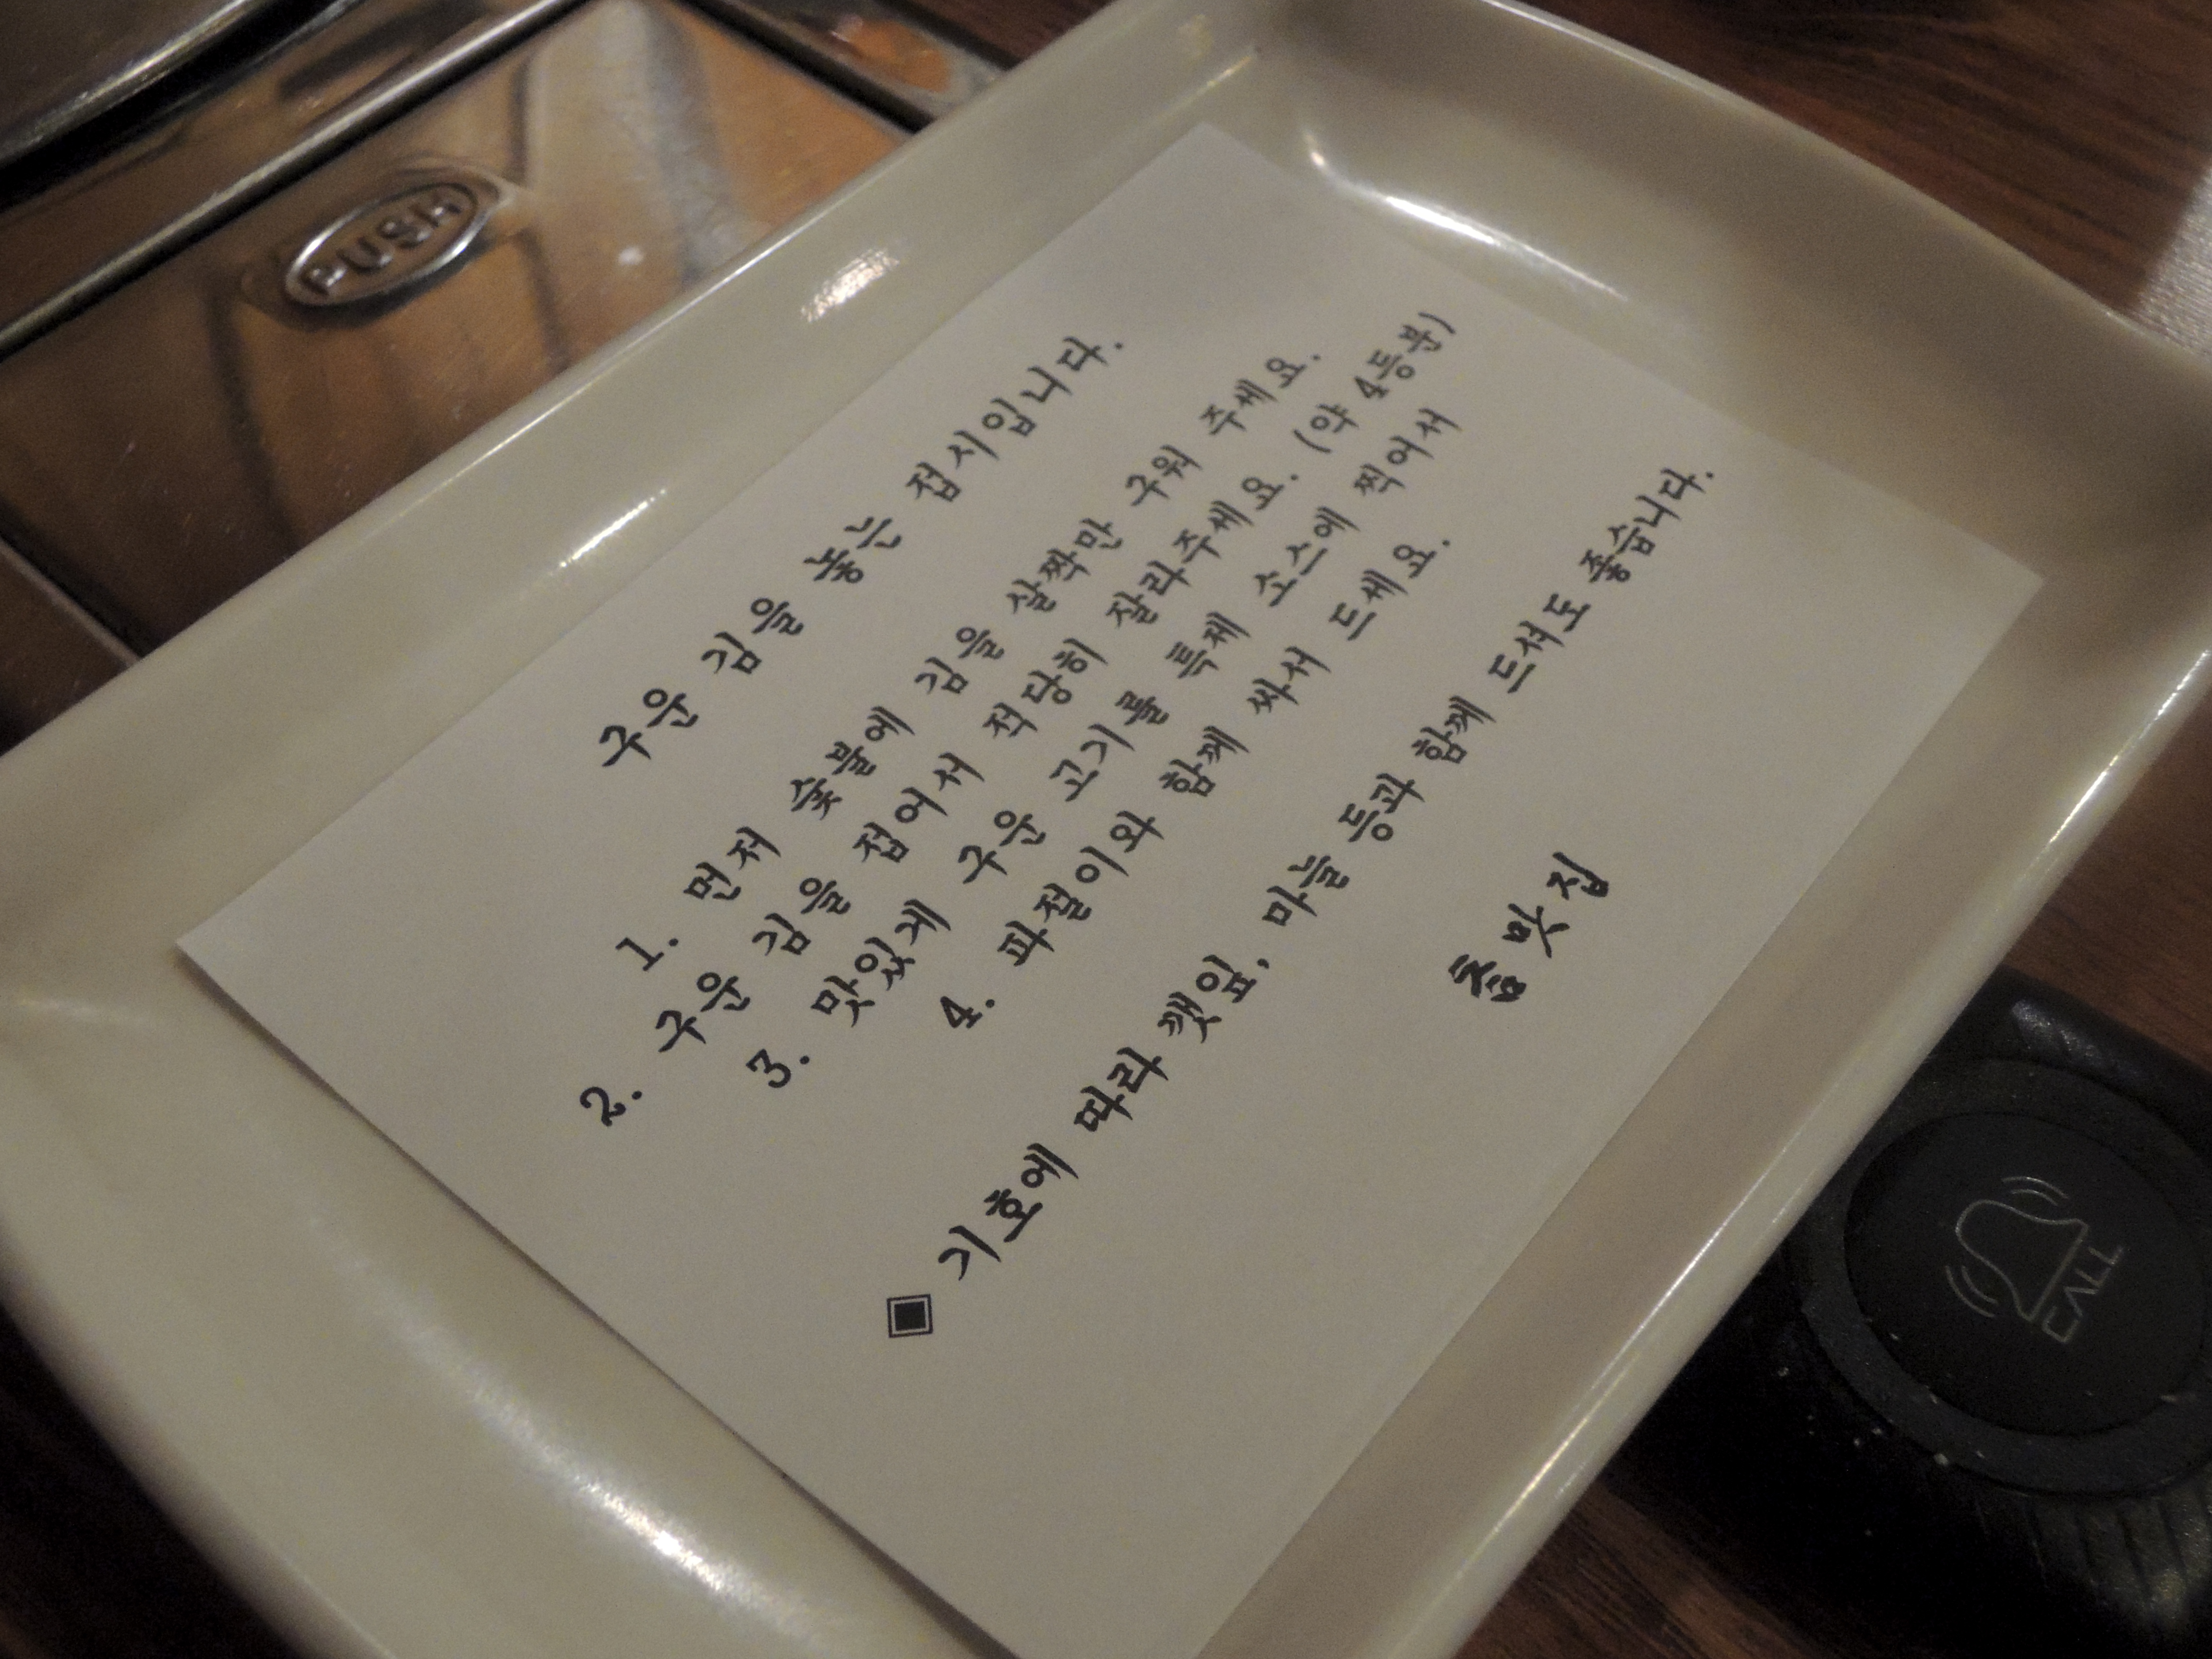 PUSH
구운 김을 놓는 접시입니다.
1. 먼저 숯불에 김을 살짝만 구워 주세요.
2. 구운 김을 접어서 적당히 잘라주세요. (약 4등분)
3. 맛있게 구운 고기를 특제 소스에 찍어서
4. 파절이와 함께 싸서 드세요.
▣ 기호에 따라 깻잎, 마늘 등과 함께 드셔도 좋습니다.
맛집
CALL